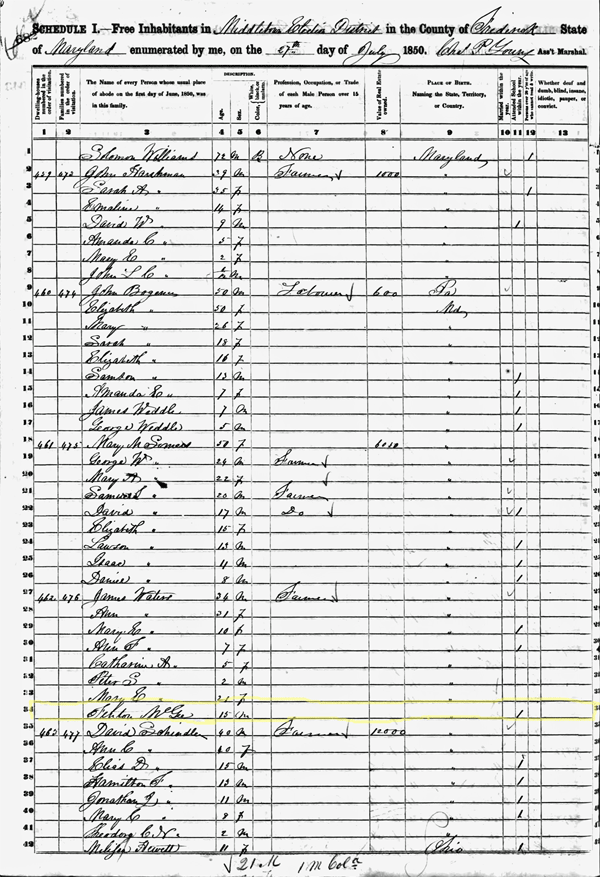 SCHEDULE I.—Free Inhabitants in Middletown Election District in the County of Frederick State
of Maryland enumerated by me, on the 27th day of July 1850. Chas P. Young Ass't Marshal.
Dwelling-houses numbered in the order of visitation.
Families numbered in the order of visitation.
The Name of every Person whose usual place of abode on the first day of June, 1850, was in this family.
DESCRIPTION.
Age.
Sex.
Color, White, black, or mulatto.
Profession, Occupation, or Trade of each Male Person over 15 years of age.
Value of Real Estate owned.
PLACE OF BIRTH. Naming the State, Territory, or Country.
Married within the year.
Attended School within the year.
Whether deaf and dumb, blind, insane, idiotic, pauper, or convict.
1 2 3 4 5 6 7 8 9 10 11 12 13
1 Solomon Williams 72 M B None Maryland 1
2 473 John Harshman 39 M Farmer 1000 "
3 Sarah A " 35 f " 1
4 Emaline " 14 f "
5 David W " 9 M " 1
6 Amanda C " 5 f "
7 Mary E " 2 f "
8 John L C " M "
9 460 474 John 50 M Labourer 600 Pa
10 Elizabeth " 50 f Md
11 Mary " 26 f "
12 Sarah " 18 f "
13 Elizabeth " 16 f "
14 13 M " 1
15 Amanda E " 7 f " 1
16 James Weddle 7 M " 1
17 George Weddle 5 M " 1
18 461 475 Mary M Somers 50 f "
19 George W " M Farmer "
20 Mary A " 22 f "
21 " 20 M Farmer "
22 David " 17 M Do " 1
23 Elizabeth " 15 f "
24 Lawson " 13 M " 1
25 Isaac " 11 M " 1
26 Daniel " 8 M " 1
27 462 476 James Waters 34 M Farmer "
28 Ann " 31 f "
29 Mary E " 10 f " 1
30 Ann F " 7 f " 1
31 Catharine A " 5 f "
32 Peter S " 2 M "
33 Mary C " 21 f "
34 15 M " 1
35 463 477 David Schindler 40 M Farmer 12000 "
36 Ann C " 40 f "
37 Elias D " 15 M " 1
38 Hamilton F " 13 M " 1
39 Jonathan " 11 M " 1
40 Mary C " 8 f " 1
41 Theodore C. N. " 2 M "
42 Hewett 11 f Ohio 1
21 M 1 M Cold